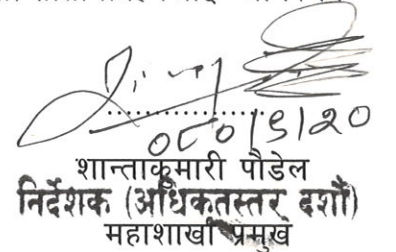 ०८०/९/२०
शान्ताकुमारी पौडेल
निर्देशक (अधिकृतस्तर दशौं)
महाशाखा प्रमुख